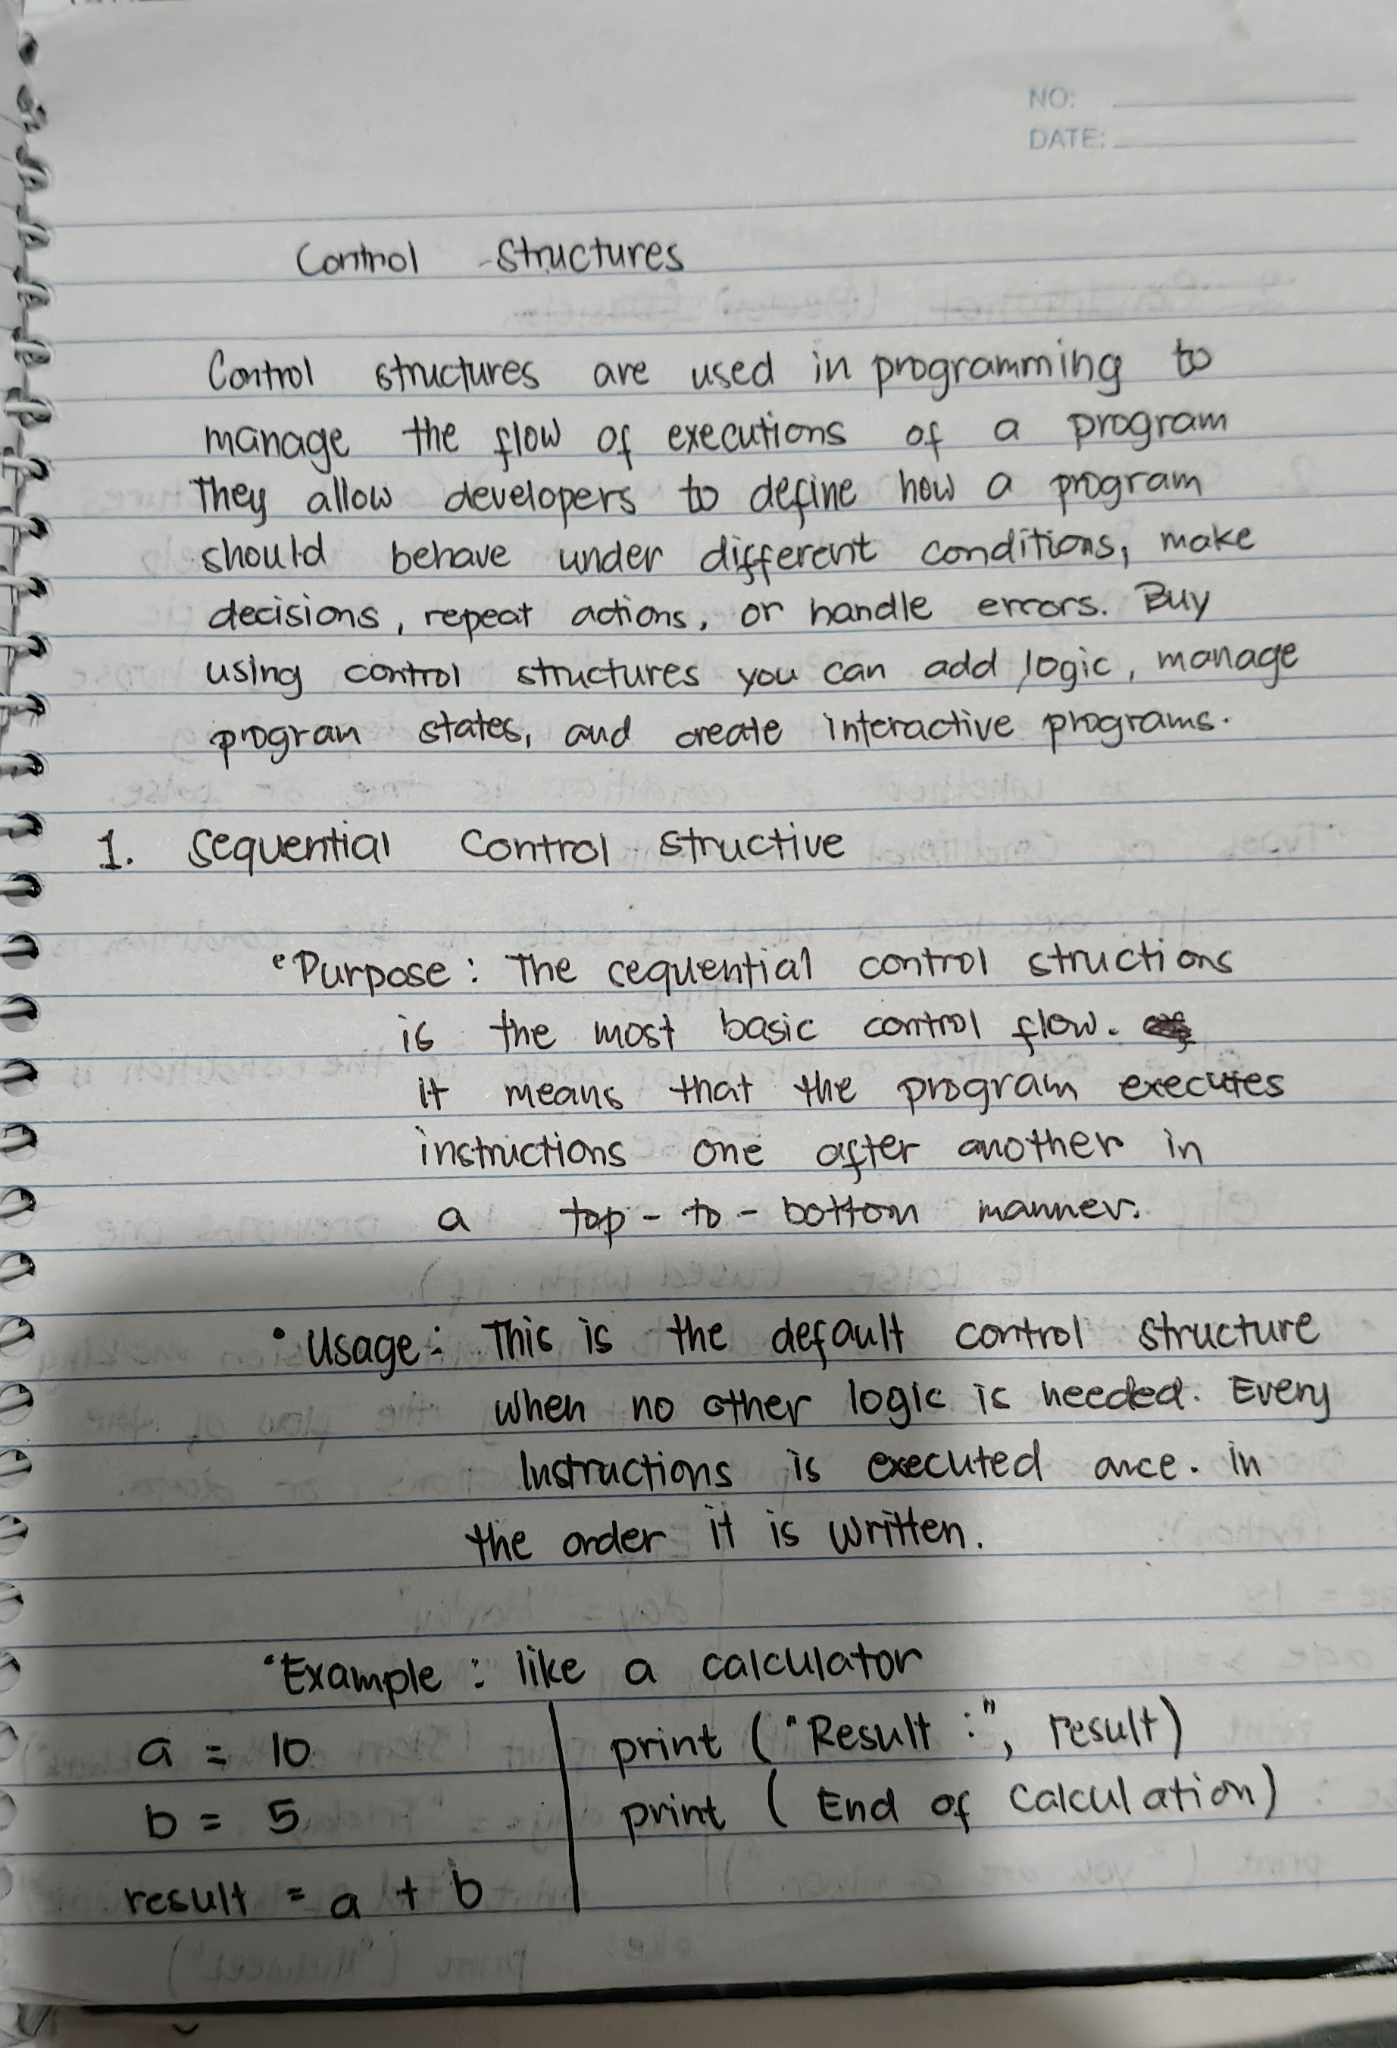 NO:
DATE:
Control Structures
Control structures are used in programming to
manage the flow of executions of a program
They allow developers to define how a program
should behave under different conditions, make
decisions, repeat actions, or handle errors. Buy
using control structures you can add logic, manage
program states, and create interactive programs.
1. Sequential Control Structive
• Purpose : The sequential control structions
is the most basic control flow.
it means that the program executes
instructions one after another in
a top - to - bottom manner.
• Usage : This is the default control structure
when no other logic is needed. Every
Instructions is executed once. in
the order it is written.
• Example : like a calculator
a = 10
b = 5
result = a + b
print ("Result :", result)
print ( End of Calculation)